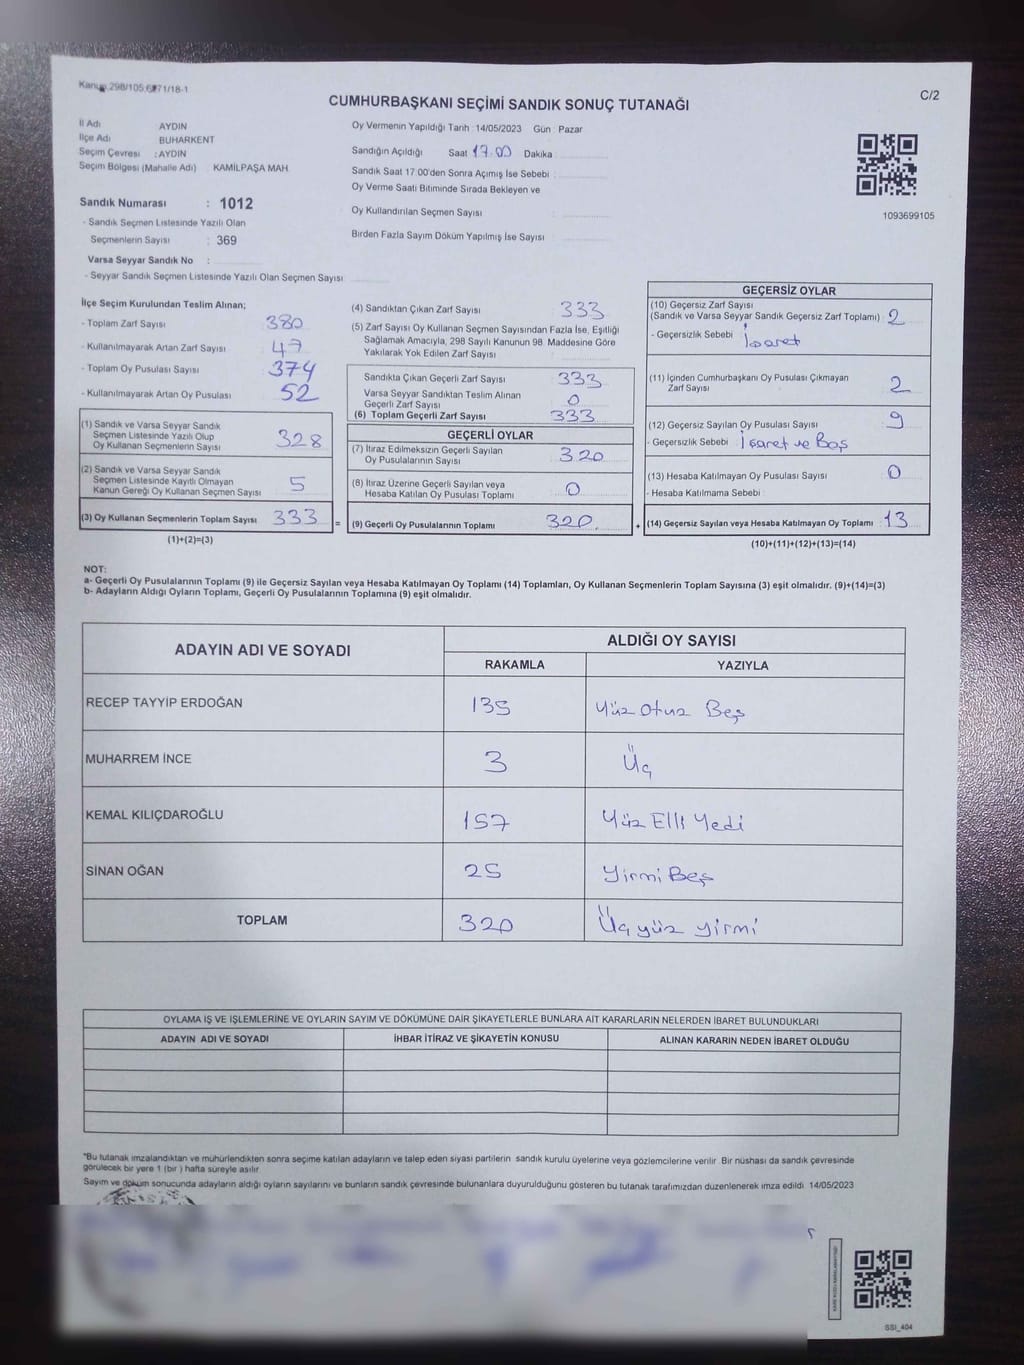 Kanun.298/105,6271/18-1
CUMHURBAŞKANI SEÇİMİ SANDIK SONUÇ TUTANAĞI
C/2
İl Adı AYDIN
İlçe Adı BUHARKENT
Seçim Çevresi : AYDIN
Seçim Bölgesi (Mahalle Adı) KAMİLPAŞA MAH
Sandık Numarası : 1012
- Sandık Seçmen Listesinde Yazılı Olan
Seçmenlerin Sayısı : 369
Varsa Seyyar Sandık No :
- Seyyar Sandık Seçmen Listesinde Yazılı Olan Seçmen Sayısı
Oy Vermenin Yapıldığı Tarih : 14/05/2023 Gün : Pazar
Sandığın Açıldığı Saat 17.00 Dakika :
Sandık Saat 17 00'den Sonra Açımış İse Sebebi :
Oy Verme Saati Bitiminde Sırada Bekleyen ve
Oy Kullandırılan Seçmen Sayısı
Birden Fazla Sayım Döküm Yapılmış İse Sayısı
1093699105
İlçe Seçim Kurulundan Teslim Alınan;
- Toplam Zarf Sayısı 380
- Kullanılmayarak Artan Zarf Sayısı 47
- Toplam Oy Pusulası Sayısı 374
- Kullanılmayarak Artan Oy Pusulası 52
(1) Sandık ve Varsa Seyyar Sandık
Seçmen Listesinde Yazılı Olup
Oy Kullanan Seçmenlerin Sayısı 328
(2) Sandık ve Varsa Seyyar Sandık
Seçmen Listesinde Kayıtlı Olmayan
Kanun Gereği Oy Kullanan Seçmen Sayısı 5
(3) Oy Kullanan Seçmenlerin Toplam Sayısı 333 =
(1)+(2)=(3)
(4) Sandıktan Çıkan Zarf Sayısı 333
(5) Zarf Sayısı Oy Kullanan Seçmen Sayısından Fazla İse, Eşitliği
Sağlamak Amacıyla, 298 Sayılı Kanunun 98 Maddesine Göre
Yakılarak Yok Edilen Zarf Sayısı
Sandıkta Çıkan Geçerli Zarf Sayısı 333
Varsa Seyyar Sandıktan Teslim Alınan
Geçerli Zarf Sayısı 0
(6) Toplam Geçerli Zarf Sayısı 333
GEÇERLİ OYLAR
(7) İtiraz Edilmeksizin Geçerli Sayılan
Oy Pusulalarının Sayısı 320
(8) İtiraz Üzerine Geçerli Sayılan veya
Hesaba Katılan Oy Pusulası Toplamı 0
(9) Geçerli Oy Pusulalarının Toplamı 320 +
GEÇERSİZ OYLAR
(10) Geçersiz Zarf Sayısı
(Sandık ve Varsa Seyyar Sandık Geçersiz Zarf Toplamı) 2
- Geçersizlik Sebebi İşaret
(11) İçinden Cumhurbaşkanı Oy Pusulası Çıkmayan
Zarf Sayısı 2
(12) Geçersiz Sayılan Oy Pusulası Sayısı 9
- Geçersizlik Sebebi İşaret ve Boş
(13) Hesaba Katılmayan Oy Pusulası Sayısı 0
- Hesaba Katılmama Sebebi
(14) Geçersiz Sayılan veya Hesaba Katılmayan Oy Toplamı : 13
(10)+(11)+(12)+(13)=(14)
NOT:
a- Geçerli Oy Pusulalarının Toplamı (9) ile Geçersiz Sayılan veya Hesaba Katılmayan Oy Toplamı (14) Toplamları, Oy Kullanan Seçmenlerin Toplam Sayısına (3) eşit olmalıdır. (9)+(14)=(3)
b- Adayların Aldığı Oyların Toplamı, Geçerli Oy Pusulalarının Toplamına (9) eşit olmalıdır.
ADAYIN ADI VE SOYADI
ALDIĞI OY SAYISI
RAKAMLA YAZIYLA
RECEP TAYYİP ERDOĞAN 135 Yüz Otuz Beş
MUHARREM İNCE 3 Üç
KEMAL KILIÇDAROĞLU 157 Yüz Elli Yedi
SİNAN OĞAN 25 Yirmi Beş
TOPLAM 320 Üçyüz yirmi
OYLAMA İŞ VE İŞLEMLERİNE VE OYLARIN SAYIM VE DÖKÜMÜNE DAİR ŞİKAYETLERLE BUNLARA AİT KARARLARIN NELERDEN İBARET BULUNDUKLARI
ADAYIN ADI VE SOYADI İHBAR İTİRAZ VE ŞİKAYETİN KONUSU ALINAN KARARIN NEDEN İBARET OLDUĞU
"Bu tutanak imzalandıktan ve mühürlendikten sonra seçime katılan adayların ve talep eden siyasi partilerin sandık kurulu üyelerine veya gözlemcilerine verilir Bir nüshası da sandık çevresinde
görülecek bir yere 1 (bir ) hafta süreyle asılır
Sayım ve döküm sonucunda adayların aldığı oyların sayılarını ve bunların sandık çevresinde bulunanlara duyurulduğunu gösteren bu tutanak tarafımızdan düzenlenerek imza edildi 14/05/2023
SSI_404